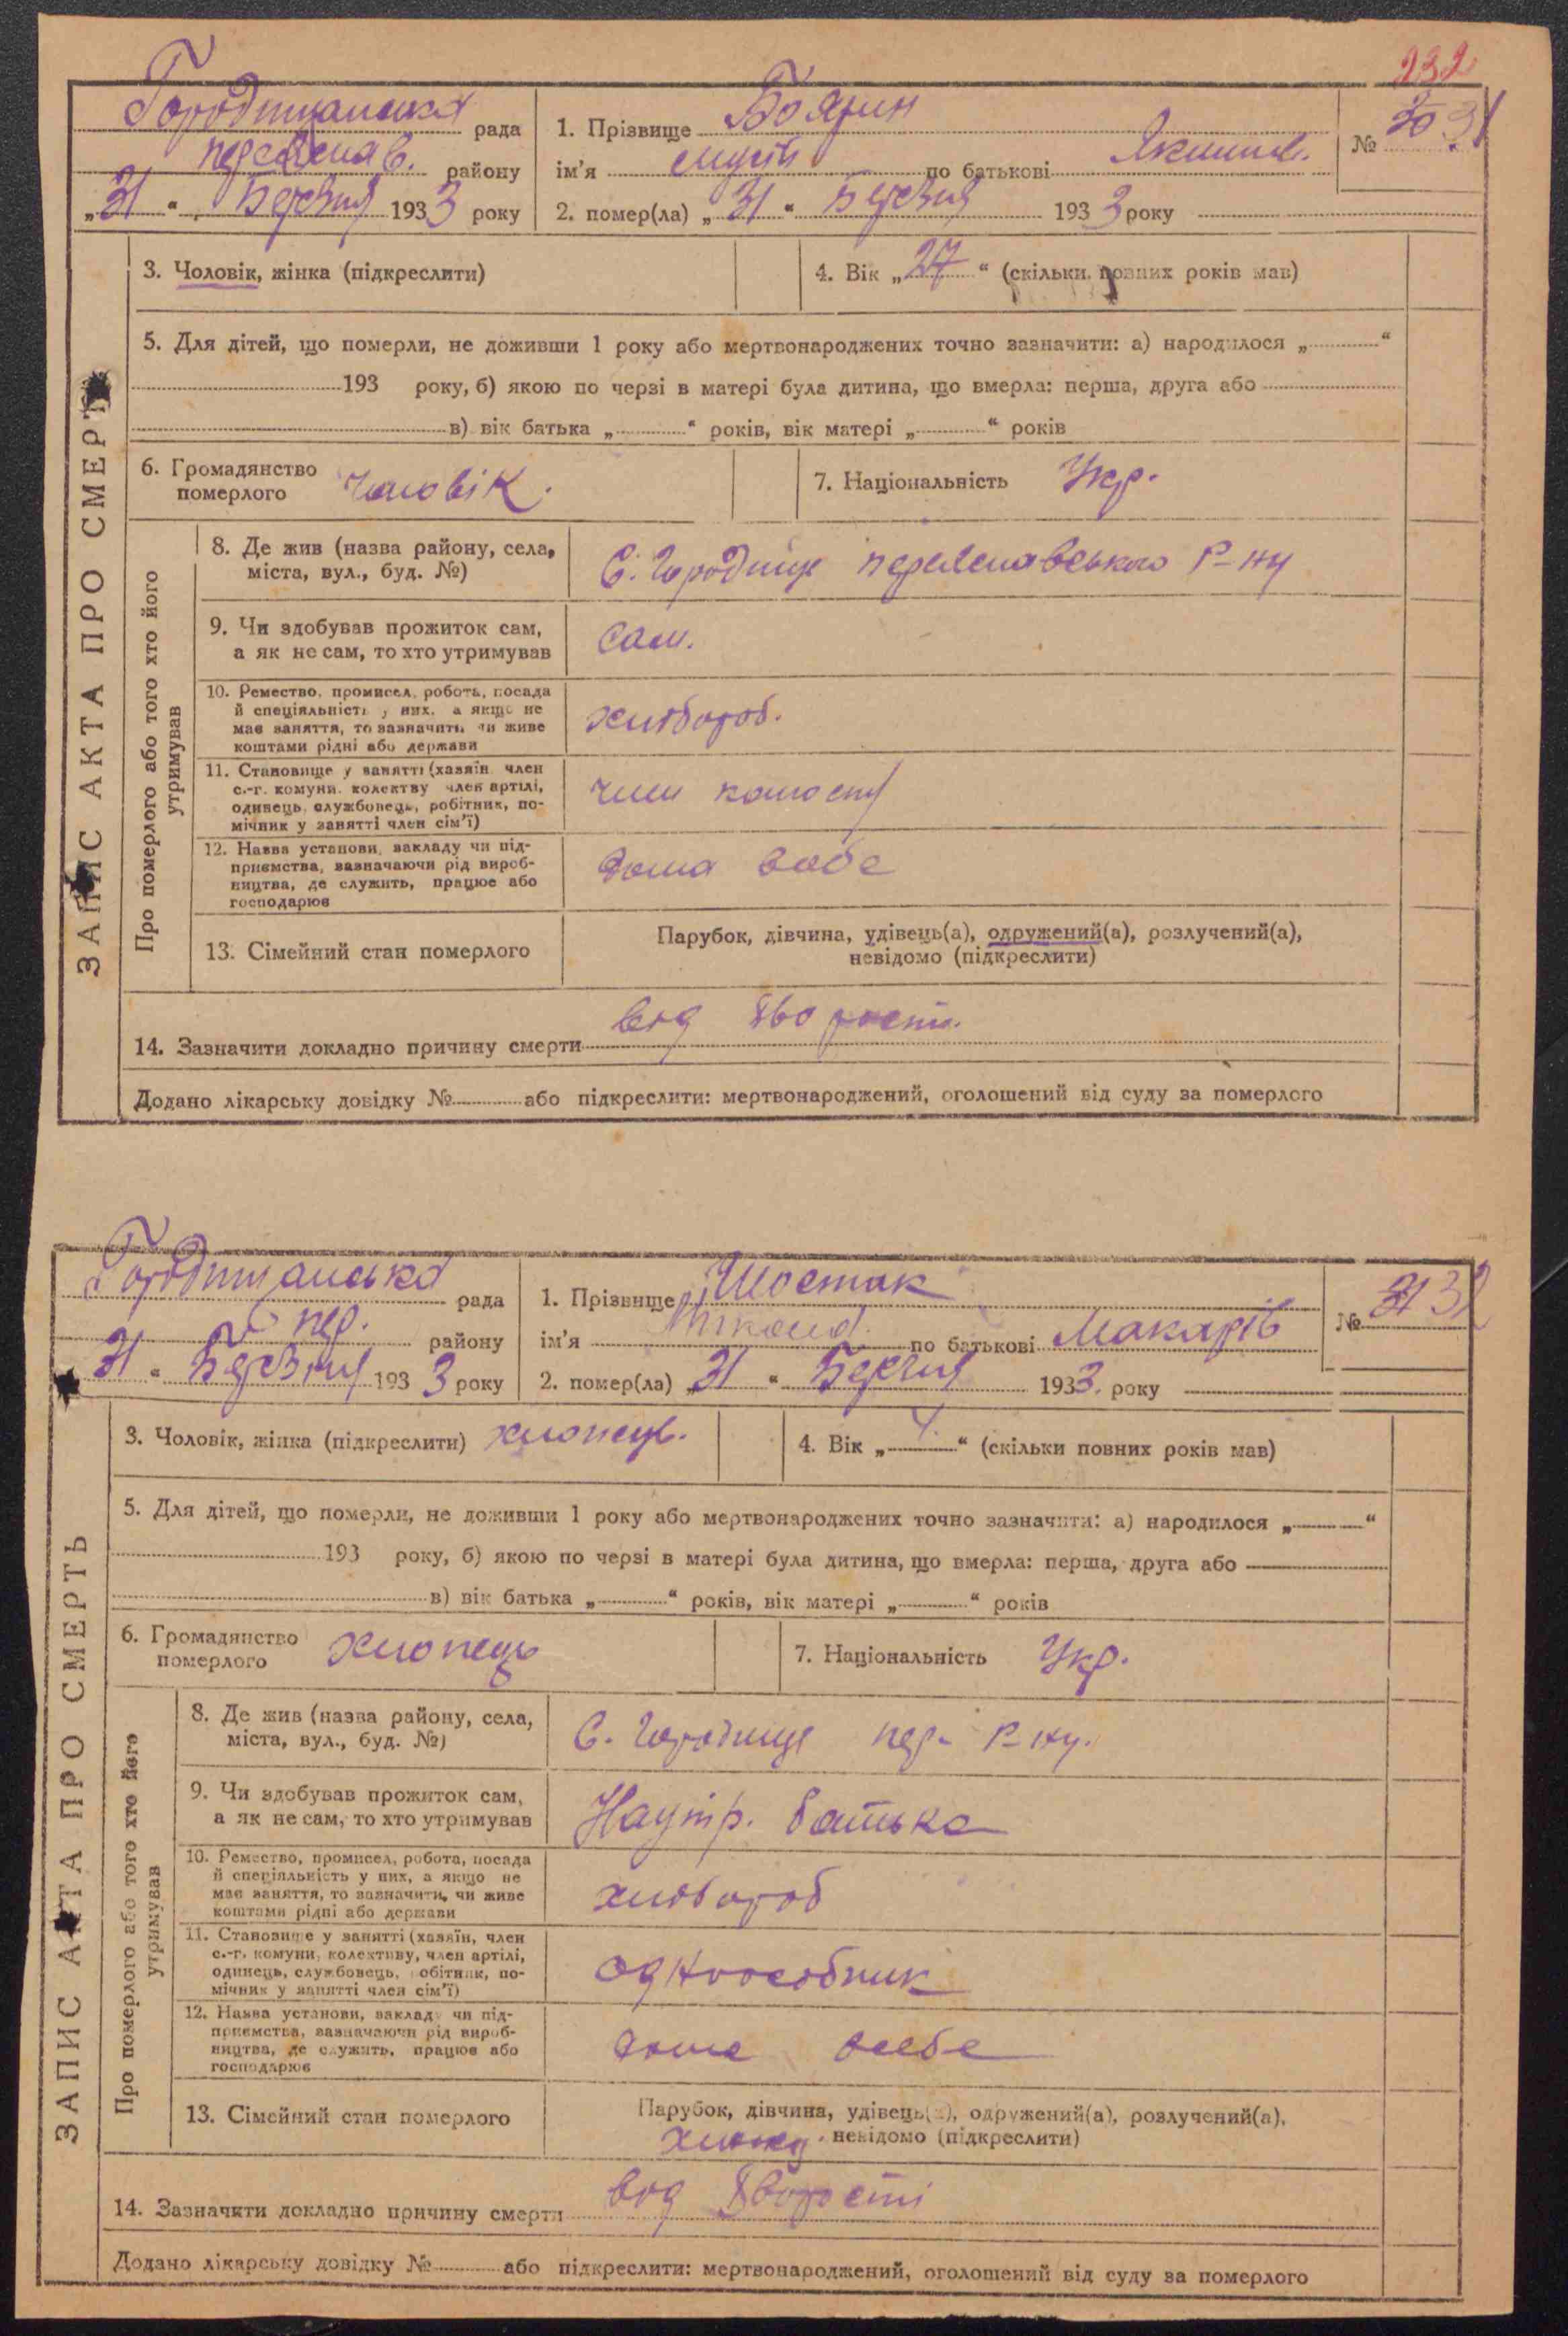 232
Городищанська рада
переяслав. району
„31“ Березня 1933 року
1. Прізвище Боярин
ім'я по батькові
2. помер(ла) „31“ Березня 1933 року
№ 30 31
ЗАПИС АКТА ПРО СМЕРТЬ
3. Чоловік, жінка (підкреслити)
4. Вік „27“ (скільки повних років мав)
5. Для дітей, що померли, не доживши 1 року або мертвонароджених точно зазначити: а) народилося „ “
193 року, б) якою по черзі в матері була дитина, що вмерла: перша, друга або
в) вік батька „ “ років, вік матері „ “ років
6. Громадянство
померлого чоловік.
7. Національність Укр.
Про померлого або того хто його
утримував
8. Де жив (назва району, села,
міста, вул., буд. №)
С. Городище переяславського р-ну
9. Чи здобував прожиток сам,
а як не сам, то хто утримував
сам.
10. Ремество, промисел, робота, посада
й спеціяльність у них, а якщо не
має заняття, то зазначити чи живе
коштами рідні або держави
хлібороб.
11. Становище у занятті (хазяїн, член
с.-г. комуни, колективу, член артілі,
одинець, службовець, робітник, по-
мічник у занятті член сім'ї)
член
12. Назва установи, закладу чи під-
приємства, зазначаючи рід вироб-
ництва, де служить, працює або
господарює
дома
13. Сімейний стан померлого
Парубок, дівчина, удівець(а), одружений(а), розлучений(а),
невідомо (підкреслити)
14. Зазначити докладно причину смерти від
Додано лікарську довідку № або підкреслити: мертвонароджений, оголошений від суду за померлого
Городищанська рада
пер. району
31 “ Березня 1933 року
1. Прізвище Шостак
ім'я по батькові Макарів
2. помер(ла) „31“ Березня 1933. року
№ 31 32
ЗАПИС АКТА ПРО СМЕРТЬ
3. Чоловік, жінка (підкреслити) хлопець.
4. Вік „4“ (скільки повних років мав)
5. Для дітей, що померли, не доживши 1 року або мертвонароджених точно зазначити: а) народилося „ “
193 року, б) якою по черзі в матері була дитина, що вмерла: перша, друга або
в) вік батька „ “ років, вік матері „ “ років
6. Громадянство
померлого хлопець
7. Національність Укр.
Про померлого або того хто його
утримував
8. Де жив (назва району, села,
міста, вул., буд. №)
С. Городище пер- р-ну.
9. Чи здобував прожиток сам,
а як не сам, то хто утримував
Наутр. батька
10. Ремество, промисел, робота, посада
й спеціяльність у них, а якщо не
має заняття, то зазначити, чи живе
коштами рідні або держави
хлібороб
11. Становище у занятті (хазяїн, член
с.-г. комуни, колективу, член артілі,
одинець, службовець, робітник, по-
мічник у занятті член сім'ї)
одноосібник
12. Назва установи, закладу чи під-
приємства, зазначаючи рід вироб-
ництва, де служить, працює або
господарює
дома всебе
13. Сімейний стан померлого
Парубок, дівчина, удівець(а), одружений(а), розлучений(а),
невідомо (підкреслити)
14. Зазначити докладно причину смерти від
Додано лікарську довідку № або підкреслити: мертвонароджений, оголошений від суду за померлого